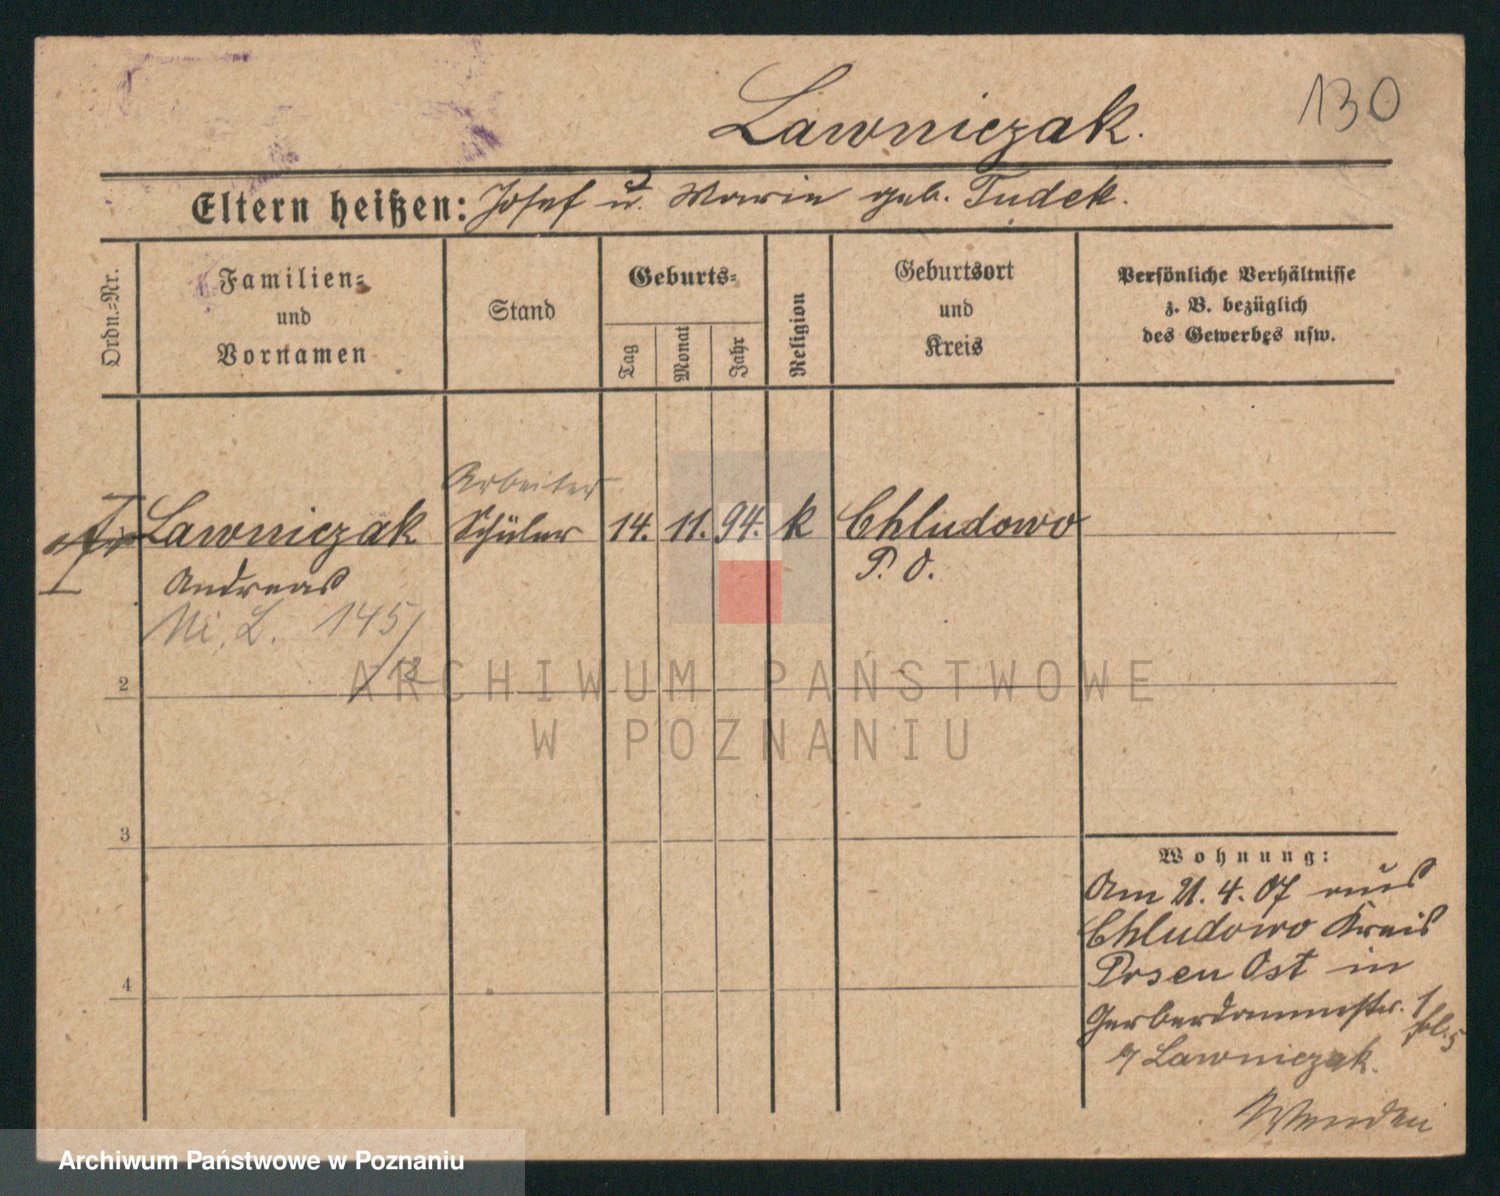 130
Lawniczak.
Eltern heißen: Josef u. Marie geb. Tudek.
Ordn.-Nr.
Familien-
und
Vornamen
Stand
Geburts-
Tag
Monat
Jahr
Religion
Geburtsort
und
Kreis
Persönliche Verhältnisse
z. B. bezüglich
des Gewerbes usw.
Arbeiter
1 Lawniczak Schüler 14. 11. 94. k Chludowo
Andreas P. O.
145/12
2
3
4
Wohnung:
Am 21. 4. 07 aus
Chludowo Kreis
Posen Ost in
Gerberdammstr. 1
b/ Lawniczak.
Wenden
ARCHIWUM PAŃSTWOWE
W POZNANIU
Archiwum Państwowe w Poznaniu